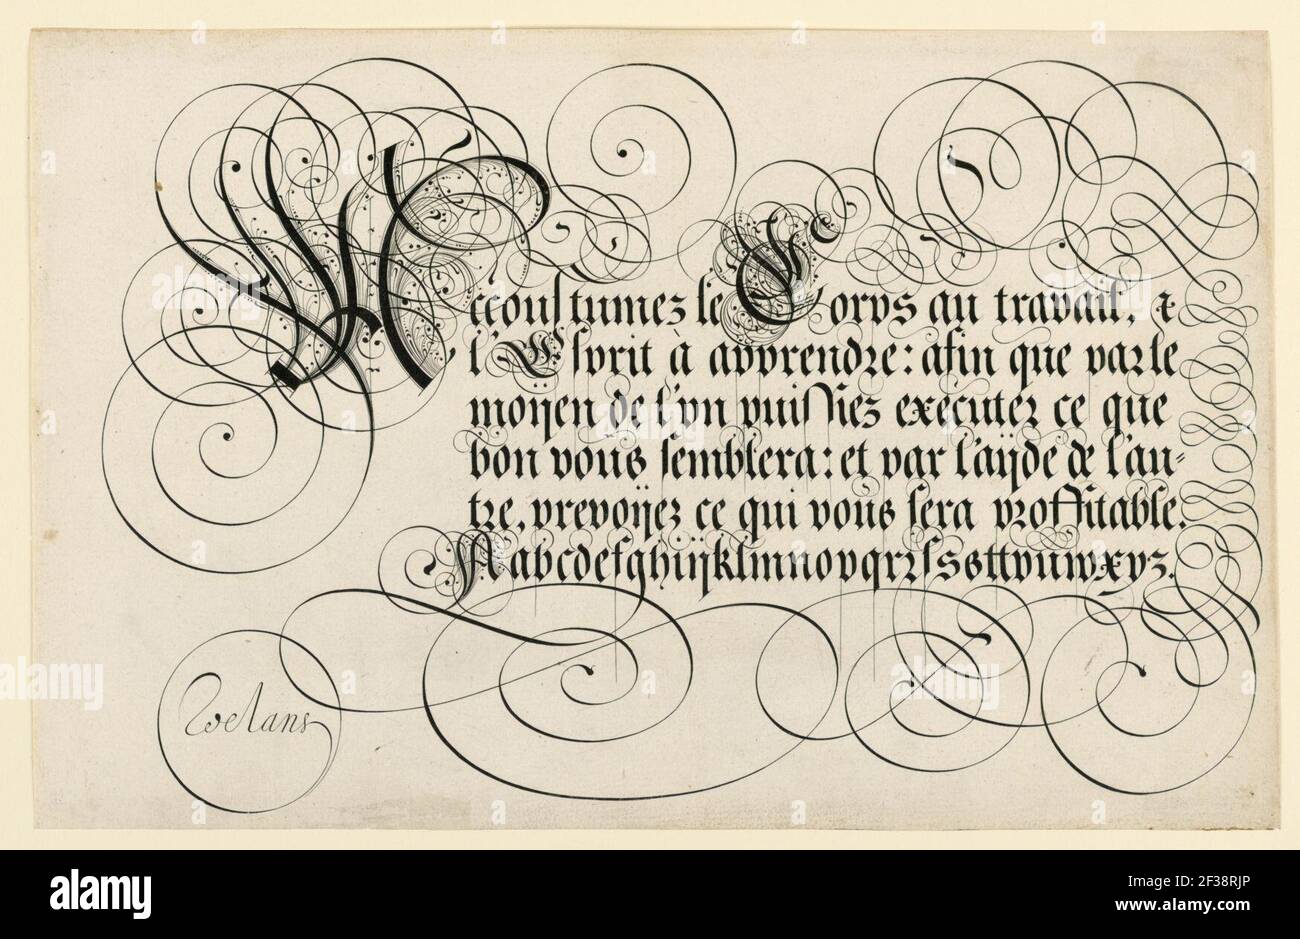 Accoustumez le Corps au travail, &
l'Esprit à apprendre: afin que par le
moÿen de l'un puissiez executer ce que
bon vous semblera: et par l'aÿde de l'au-
tre, prevoÿez ce qui vous sera proffitable.
A abcdefghiijklmnopqrzſssttvuwxyz.
Roelans
a alamy
alamy
Image ID: 2F38RJP
www.alamy.com